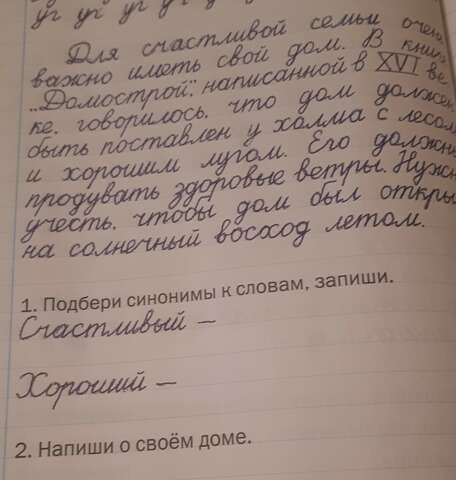 уг уг уг уг уг
Для счастливой семьи очен
важно иметь свой дом. В книге
„Домострой", написанной в XVI ве
ке, говорилось, что дом должен
быть поставлен у холма с лесом
и хорошим лугом. Его должны
продувать здоровые ветры. Нужн
учесть, чтобы дом был откры
на солнечный восход летом.
1. Подбери синонимы к словам, запиши.
Счастливый —
Хороший —
2. Напиши о своём доме.